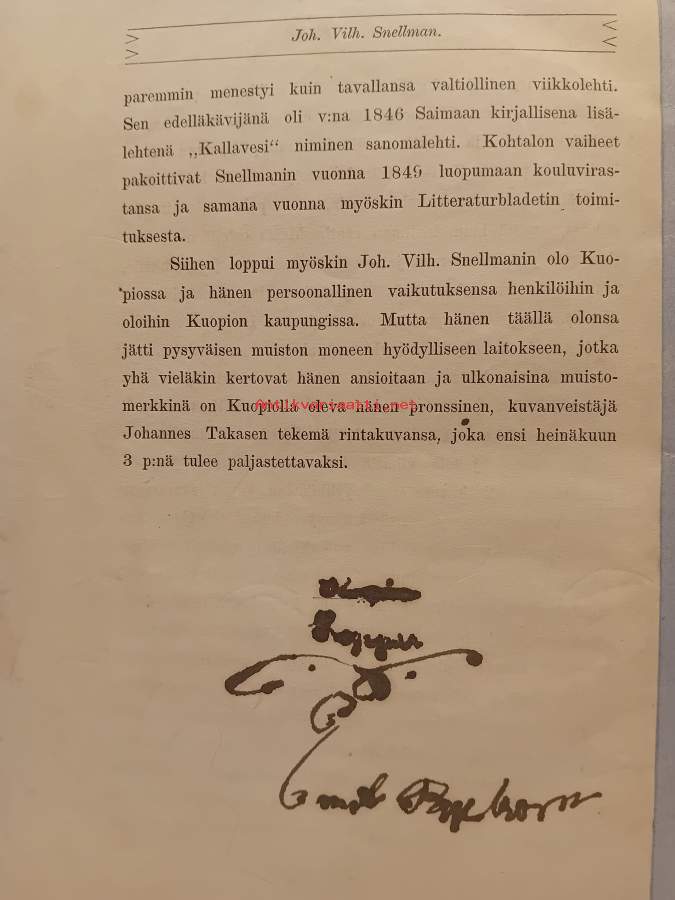 Joh. Vilh. Snellman.
paremmin menestyi kuin tavallansa valtiollinen viikkolehti.
Sen edelläkävijänä oli v:na 1846 Saimaan kirjallisena lisä-
lehtenä „Kallavesi“ niminen sanomalehti. Kohtalon vaiheet
pakoittivat Snellmanin vuonna 1849 luopumaan kouluviras-
tansa ja samana vuonna myöskin Litteraturbladetin toimi-
tuksesta.
Siihen loppui myöskin Joh. Vilh. Snellmanin olo Kuo-
piossa ja hänen persoonallinen vaikutuksensa henkilöihin ja
oloihin Kuopion kaupungissa. Mutta hänen täällä olonsa
jätti pysyväisen muiston moneen hyödylliseen laitokseen, jotka
yhä vieläkin kertovat hänen ansioitaan ja ulkonaisina muisto-
merkkinä on Kuopiolla oleva hänen pronssinen, kuvanveistäjä
Antikvariaatti.net
Johannes Takasen tekemä rintakuvansa, joka ensi heinäkuun
3 p:nä tulee paljastettavaksi.